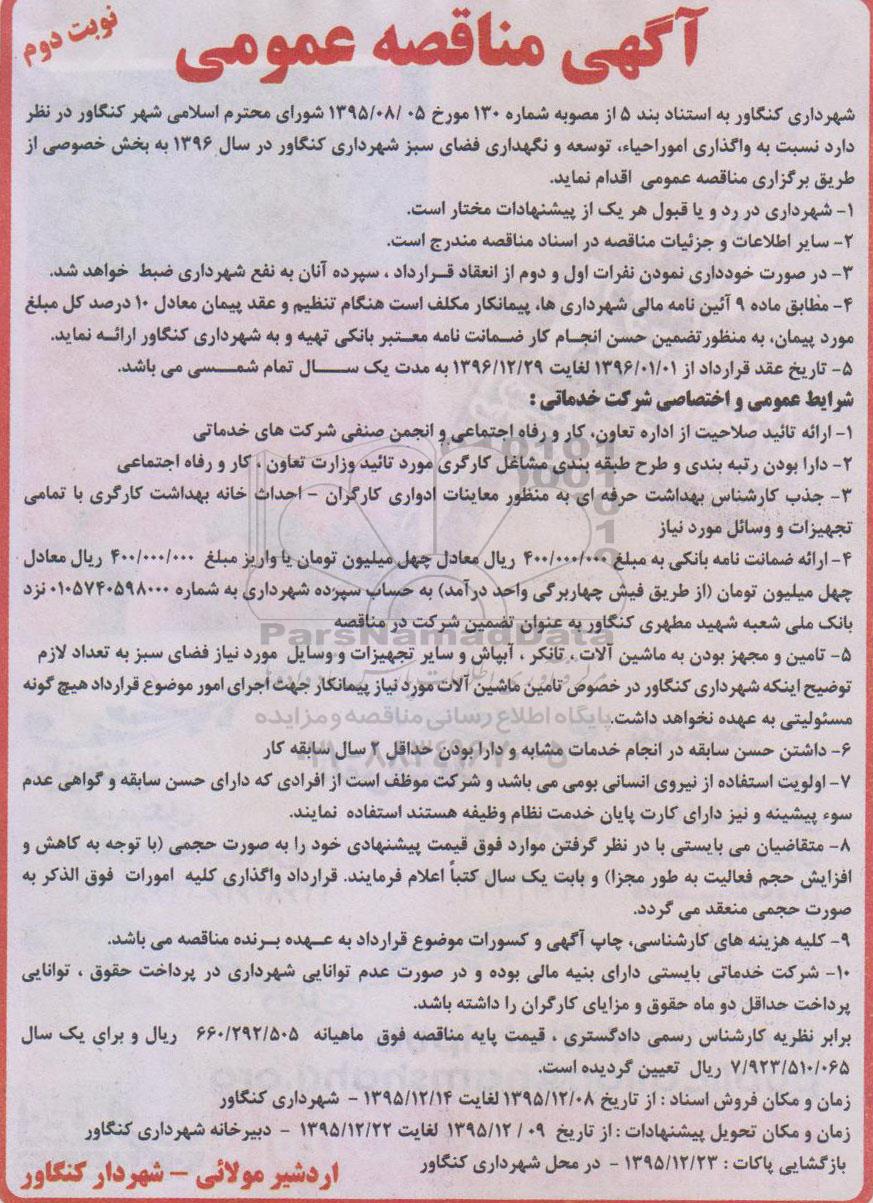 نوبت دوم
آگهی مناقصه عمومی
شهرداری کنگاور به استناد بند ۵ از مصوبه شماره ۱۳۰ مورخ ۰۵ /۱۳۹۵/۰۸ شورای محترم اسلامی شهر کنگاور در نظر
دارد نسبت به واگذاری اموراحیاء، توسعه و نگهداری فضای سبز شهرداری کنگاور در سال ۱۳۹۶ به بخش خصوصی از
طریق برگزاری مناقصه عمومی اقدام نماید.
۱- شهرداری در رد و یا قبول هر یک از پیشنهادات مختار است.
۲- سایر اطلاعات و جزئیات مناقصه در اسناد مناقصه مندرج است.
۳- در صورت خودداری نمودن نفرات اول و دوم از انعقاد قرارداد ، سپرده آنان به نفع شهرداری ضبط خواهد شد.
۴- مطابق ماده ۹ آئین نامه مالی شهرداری ها، پیمانکار مکلف است هنگام تنظیم و عقد پیمان معادل ۱۰ درصد کل مبلغ
مورد پیمان، به منظورتضمین حسن انجام کار ضمانت نامه معتبر بانکی تهیه و به شهرداری کنگاور ارائه نماید.
۵- تاریخ عقد قرارداد از ۱۳۹۶/۰۱/۰۱ لغایت ۱۳۹۶/۱۲/۲۹ به مدت یک سال تمام شمسی می باشد.
شرایط عمومی و اختصاصی شرکت خدماتی :
۱- ارائه تائید صلاحیت از اداره تعاون، کار و رفاه اجتماعی و انجمن صنفی شرکت های خدماتی
۲- دارا بودن رتبه بندی و طرح طبقه بندی مشاغل کارگری مورد تائید وزارت تعاون ، کار و رفاه اجتماعی
۳- جذب کارشناس بهداشت حرفه ای به منظور معاینات ادواری کارگران - احداث خانه بهداشت کارگری با تمامی
تجهیزات و وسائل مورد نیاز
۴- ارائه ضمانت نامه بانکی به مبلغ ۴۰۰/۰۰۰/۰۰۰ ریال معادل چهل میلیون تومان یا واریز مبلغ ۴۰۰/۰۰۰/۰۰۰ ریال معادل
چهل میلیون تومان (از طریق فیش چهاربرگی واحد درآمد) به حساب سپرده شهرداری به شماره ۰۱۰۵۷۴۰۵۹۸۰۰۰ نزد
بانک ملی شعبه شهید مطهری کنگاور به عنوان تضمین شرکت در مناقصه
ParsNamadData
۵- تامین و مجهز بودن به ماشین آلات ، تانکر ، آبپاش و سایر تجهیزات و وسایل مورد نیاز فضای سبز به تعداد لازم
توضیح اینکه شهرداری کنگاور در خصوص تامین ماشین آلات مورد نیاز پیمانکار جهت اجرای امور موضوع قرارداد هیچ گونه
مسئولیتی به عهده نخواهد داشت.
پایگاه اطلاع رسانی مناقصه و مزایده
۶- داشتن حسن سابقه در انجام خدمات مشابه و دارا بودن حداقل ۲ سال سابقه کار
۷- اولویت استفاده از نیروی انسانی بومی می باشد و شرکت موظف است از افرادی که دارای حسن سابقه و گواهی عدم
سوء پیشینه و نیز دارای کارت پایان خدمت نظام وظیفه هستند استفاده نمایند.
۸- متقاضیان می بایستی با در نظر گرفتن موارد فوق قیمت پیشنهادی خود را به صورت حجمی (با توجه به کاهش و
افزایش حجم فعالیت به طور مجزا) و بابت یک سال کتباً اعلام فرمایند. قرارداد واگذاری کلیه امورات فوق الذکر به
صورت حجمی منعقد می گردد.
۹- کلیه هزینه های کارشناسی، چاپ آگهی و کسورات موضوع قرارداد به عهده برنده مناقصه می باشد.
۱۰- شرکت خدماتی بایستی دارای بنیه مالی بوده و در صورت عدم توانایی شهرداری در پرداخت حقوق ، توانایی
پرداخت حداقل دو ماه حقوق و مزایای کارگران را داشته باشد.
برابر نظریه کارشناس رسمی دادگستری ، قیمت پایه مناقصه فوق ماهیانه ۶۶۰/۲۹۲/۵۰۵ ریال و برای یک سال
۷/۹۲۳/۵۱۰/۰۶۵ ریال تعیین گردیده است.
زمان و مکان فروش اسناد : از تاریخ ۱۳۹۵/۱۲/۰۸ لغایت ۱۳۹۵/۱۲/۱۴ - شهرداری کنگاور
زمان و مکان تحویل پیشنهادات : از تاریخ ۰۹ /۱۳۹۵/۱۲ لغایت ۱۳۹۵/۱۲/۲۲ - دبیرخانه شهرداری کنگاور
بازگشایی پاکات : ۱۳۹۵/۱۲/۲۳ - در محل شهرداری کنگاور
اردشیر مولائی - شهردار کنگاور